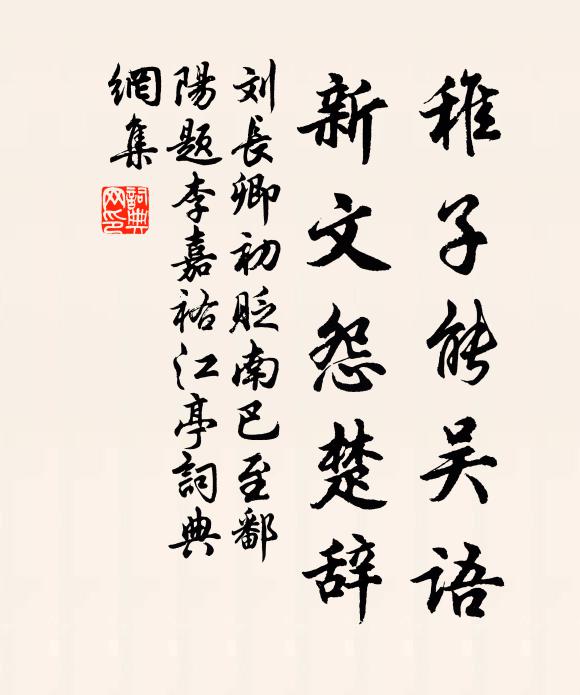 稚子能吴语
新文怨楚辞
刘長卿初貶南巴至鄱
陽题李嘉祐江亭詞典
網集
詞典
网印